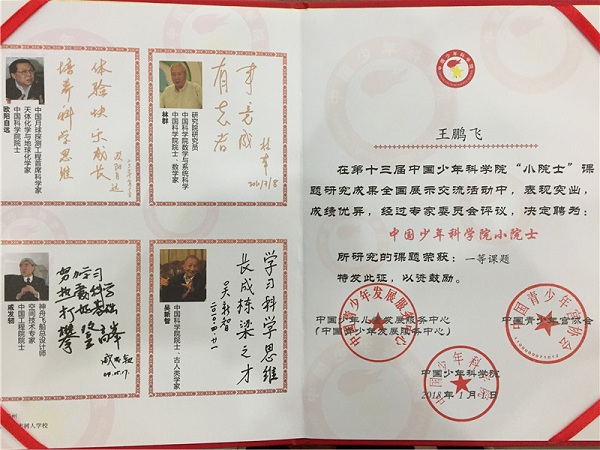 欧阳自远
中国科学院院士
天体化学与地球化学家
中国月球探测工程首席科学家
体验快乐成长
培养科学思维
林群
中国科学院院士、数学家
中国科学院数学与系统科学
研究院研究员
有志者
事竟成
戚发轫
中国工程院院士
空间技术专家
神舟飞船总设计师
努力学习
热爱科学
打好基础
攀登高峰
戚发轫
04.05.17.
吴新智
中国科学院院士、古人类学家
学习科学思维
长成栋梁之才
吴新智
州
树人学校
王鹏飞
在第十三届中国少年科学院“小院士”课
题研究成果全国展示交流活动中，表现突出，
成绩优异，经过专家委员会评议，决定聘为：
中国少年科学院小院士
所研究的课题荣获：一等课题
特发此证，以资鼓励。
中国少年儿童发展服务中心
（中国青少年发展服务中心）
中国青少年宫协会
中国少年科学院
2018年1月